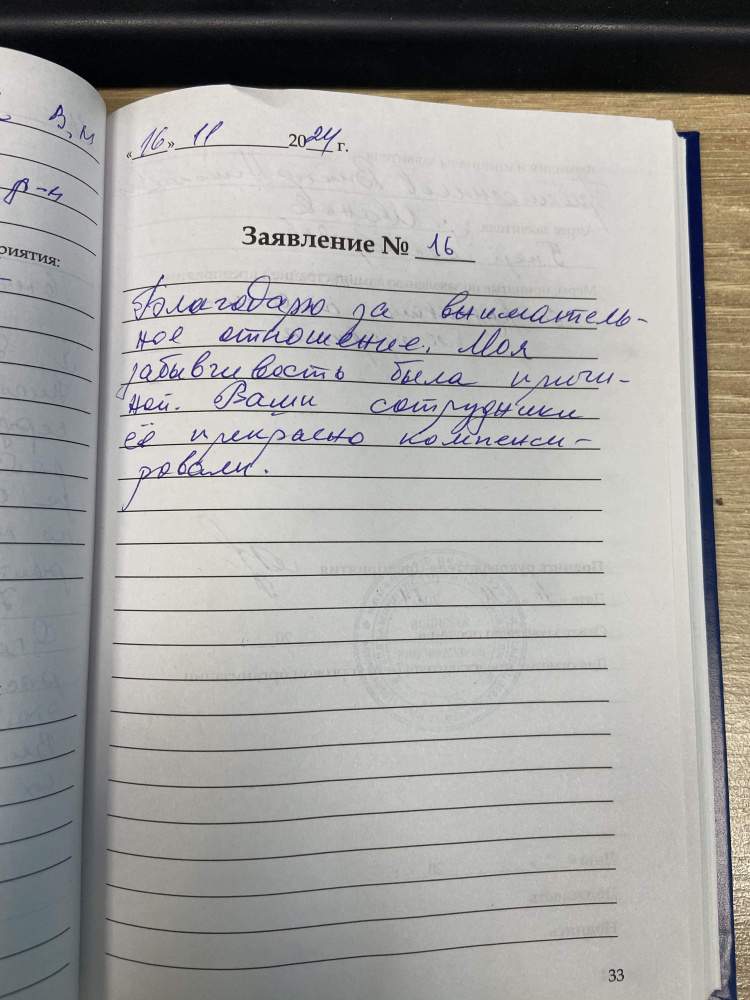 В, м
«16» 11 2024 г.
Заявление № 16
риятия:
Благодарю за вниматель-
ное отношение. Моя
забывчивость была причи-
ной. Вами сотрудники
её прекрасно компенси-
ровали.
33